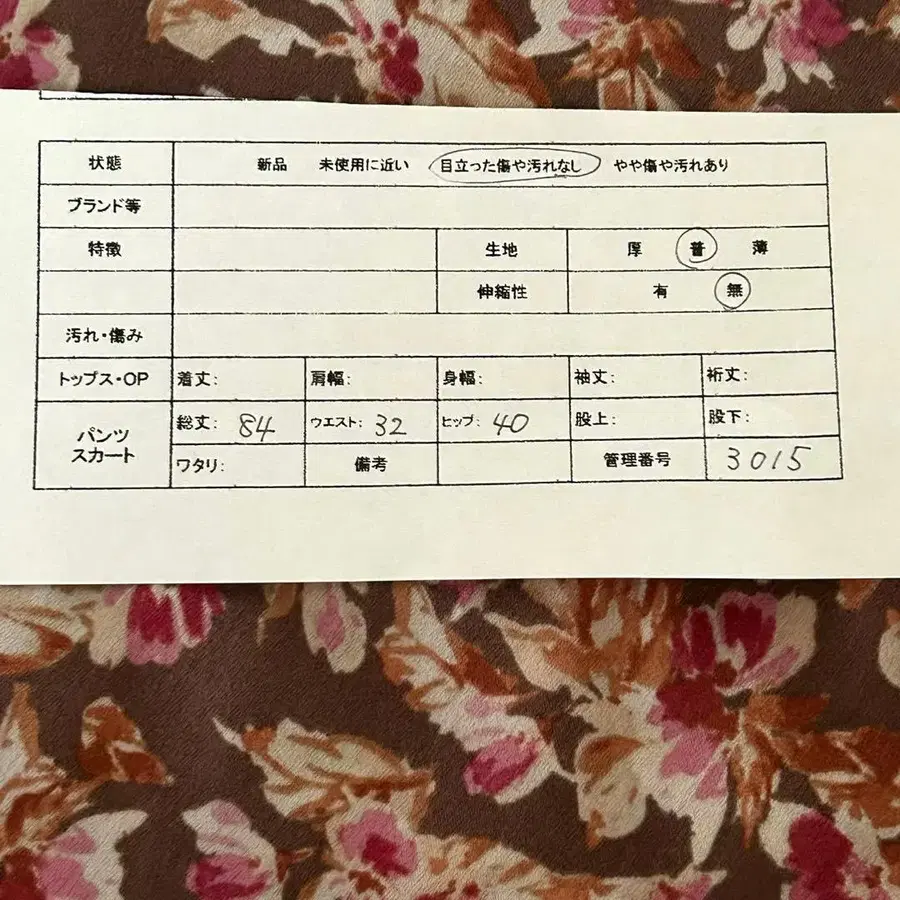 状態 新品 未使用に近い 目立った傷や汚れなし やや傷や汚れあり
ブランド等
特徴 生地 厚 普 薄
伸縮性 有 無
汚れ・傷み
トップス・OP 着丈: 肩幅: 身幅: 袖丈: 裄丈:
パンツ
スカート
総丈: 84 ウエスト: 32 ヒップ: 40 股上: 股下:
ワタリ: 備考 管理番号 3015